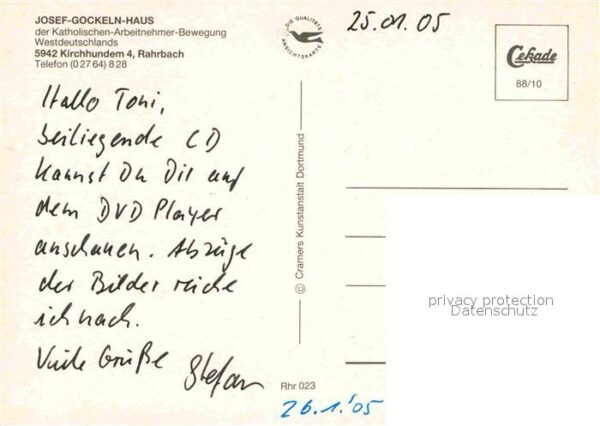 JOSEF-GOCKELN-HAUS
der Katholischen-Arbeitnehmer-Bewegung
Westdeutschlands
5942 Kirchhundem 4, Rahrbach
Telefon (0 27 64) 8 28
DIE QUALITÄTS
ANSICHTSKARTE
25.01.05
Cekade
88/10
Hallo Toni,
beiliegende CD
kannst Du Dir auf
dem DVD Player
anschauen. Abzüge
der Bilder reiche
ich nach.
Viele Grüße
Stefan
© Cramers Kunstanstalt Dortmund
Rhr 023
26.1.'05
privacy protection
Datenschutz